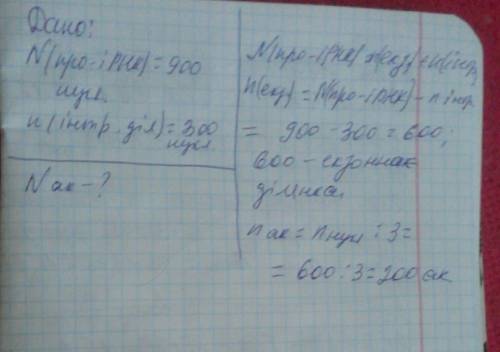 Дано:
N(про-іРНК)=900
нукл.
n(інтр. діл)=300
нукл.
N ак - ?
N(про-іРНК)=n(екз)+n(інтр)
n(екз)=N(про-іРНК)-n інтр.
= 900-300=600;
600 - екзонна
ділянка.
n ак = n нукл : 3 =
= 600:3=200 ак